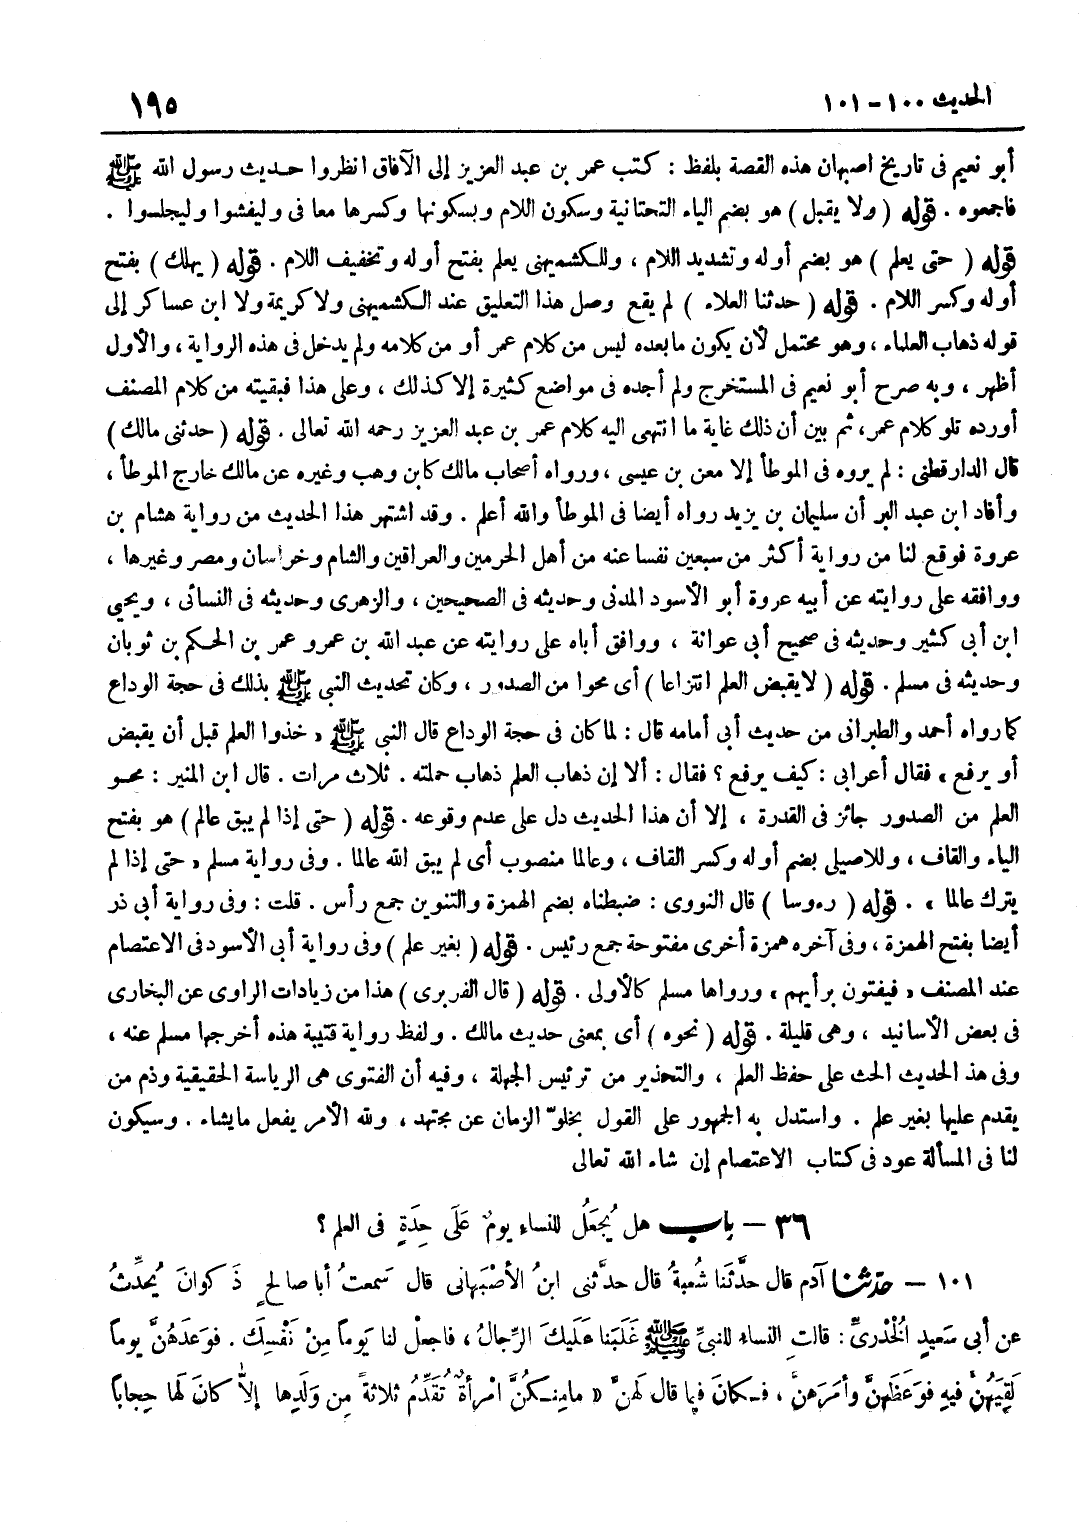 الحديث ١٠٠ - ١٠١
١٩٥
أبو نعيم فى تاريخ اصبهان هذه القصة بلفظ : كتب عمر بن عبد العزيز إلى الآفاق انظروا حديث رسول الله ﷺ
فاجمعوه . قوله ( ولا يقبل ) هو بضم الياء التحتانية وسكون اللام وبسكونها وكسرها معا فى وليفشوا وليجلسوا .
قوله ( حتى يعلم ) هو بضم أوله وتشديد اللام ، وللكشميهنى يعلم بفتح أوله وتخفيف اللام . قوله ( يهلك ) بفتح
أوله وكسر اللام . قوله ( حدثنا العلاء ) لم يقع وصل هذا التعليق عند الكشميهنى ولا كريمة ولا ابن عساكر إلى
قوله ذهاب العلماء ، وهو محتمل لأن يكون ما بعده ليس من كلام عمر أو من كلامه ولم يدخل فى هذه الرواية ، والأول
أظهر ، وبه صرح أبو نعيم فى المستخرج ولم أجده فى مواضع كثيرة إلا كذلك ، وعلى هذا فبقيته من كلام المصنف
أورده تلو كلام عمر، ثم بين أن ذلك غاية ما انتهى اليه كلام عمر بن عبد العزيز رحمه الله تعالى . قوله ( حدثنى مالك )
قال الدارقطنى : لم يروه فى الموطأ إلا معن بن عيسى ، ورواه أصحاب مالك كابن وهب وغيره عن مالك خارج الموطأ ،
وأفاد ابن عبد البر أن سليمان بن يزيد رواه أيضا فى الموطأ والله أعلم . وقد اشتهر هذا الحديث من رواية هشام بن
عروة فوقع لنا من رواية أكثر من سبعين نفسا عنه من أهل الحرمين والعراقين والشام وخراسان ومصر وغيرها ،
ووافقه على روايته عن أبيه عروة أبو الأسود المدنى وحديثه فى الصحيحين ، والزهرى وحديثه فى النسائى ، ويحيي
ابن أبى كثير وحديثه فى صحيح أبى عوانة ، ووافق أباه على روايته عن عبد الله بن عمرو عمر بن الحكم بن ثوبان
وحديثه فى مسلم . قوله ( لا يقبض العلم انتزاعا ) أى محوا من الصدور ، وكان تحديث النبى ﷺ بذلك فى حجة الوداع
كما رواه أحمد والطبرانى من حديث أبى أمامه قال : لما كان فى حجة الوداع قال النبى ﷺ « خذوا العلم قبل أن يقبض
أو يرفع » فقال أعرابى : كيف يرفع ؟ فقال : ألا إن ذهاب العلم ذهاب حملته . ثلاث مرات . قال ابن المنير : محو
العلم من الصدور جائز فى القدرة ، إلا أن هذا الحديث دل على عدم وقوعه . قوله ( حتى إذا لم يبق عالم ) هو بفتح
الياء والقاف ، وللاصيلى بضم أوله وكسر القاف ، وعالما منصوب أى لم يبق الله عالما . وفى رواية مسلم « حتى إذا لم
يترك عالما » . قوله ( رءوسا ) قال النووى : ضبطناه بضم الهمزة والتنوين جمع رأس . قلت : وفى رواية أبى ذر
أيضا بفتح الهمزة ، وفى آخره همزة أخرى مفتوحة جمع رئيس . قوله ( بغير علم ) وفى رواية أبى الأسود فى الاعتصام
عند المصنف « فيفتون برأيهم » ورواها مسلم كالأولى . قوله ( قال الفربرى ) هذا من زيادات الراوى عن البخارى
فى بعض الأسانيد ، وهى قليلة . قوله ( نحوه ) أى بمعنى حديث مالك . ولفظ رواية قتيبة هذه أخرجها مسلم عنه ،
وفى هذ الحديث الحث على حفظ العلم ، والتحذير من ترئيس الجهلة ، وفيه أن الفتوى هى الرياسة الحقيقية وذم من
يقدم عليها بغير علم . واستدل به الجمهور على القول بخلوّ الزمان عن مجتهد ، ولله الأمر يفعل ما يشاء . وسيكون
لنا فى المسألة عود فى كتاب الاعتصام إن شاء الله تعالى
٣٦ - باب هل يُجعَلُ للنساءِ يومٌ عَلَى حِدَةٍ فى العلم ؟
١٠١ - حدثنا آدم قال حدَّثَنا شُعبةُ قال حدَّثنى ابنُ الأصْبَهانى قال سَمعتُ أبا صالحٍ ذَكوانَ يُحدِّثُ
عن أبى سَعيدٍ الْخُدرىِّ : قالتِ النساءُ للنبىِّ ﷺ غَلَبَنا عَلَيكَ الرِّجالُ ، فاجعلْ لنا يَوماً مِنْ نَفْسِكَ . فوَعَدَهُنَّ يوماً
لَقِيَهُنَّ فيهِ فوَعَظَهنَّ وأمَرَهنَّ ، فكانَ فيما قال لهنَّ « ما مِنكُنَّ امْرأةٌ تُقَدِّمُ ثلاثةً مِن وَلَدِها إلاَّ كانَ لَها حِجاباً